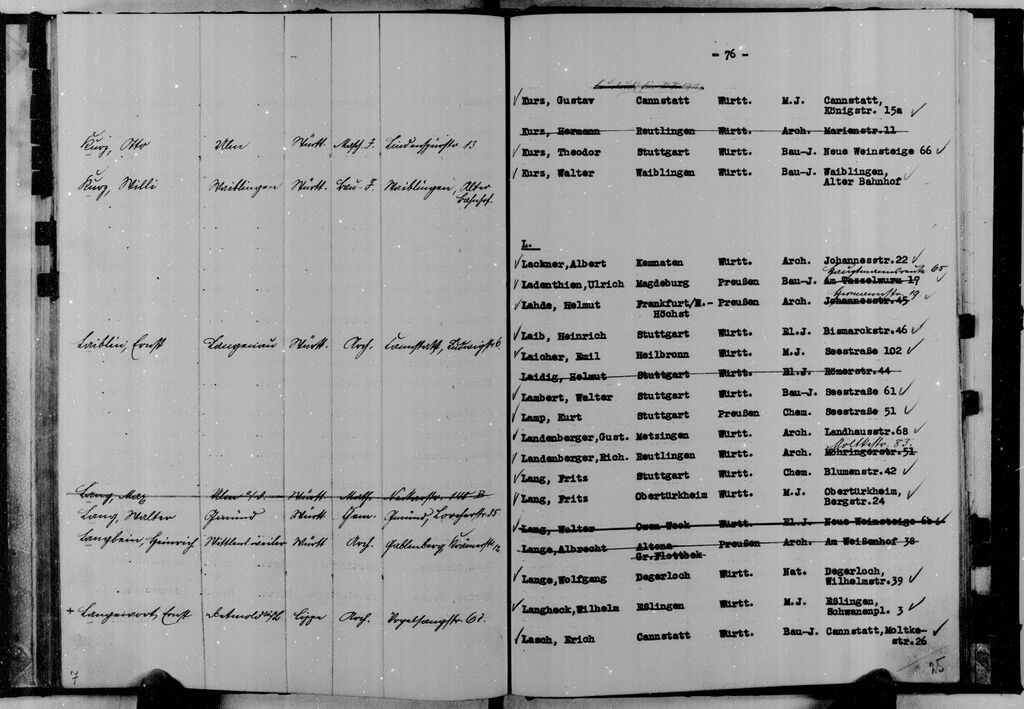 Kurz, Otto Ulm Württ. Masch. J. Lindenspürstr. 13
Kurz, Willi Waiblingen Württ. Bau-J. Waiblingen, Alter
Bahnhof.
Laiblin, Ernst Langenau Württ. Arch. Cannstatt, Ludwigstr. 6.
Lang, Max Ulm a/d. Württ. Math. Neckarstr. 148 B
Lang, Walter Gmünd Württ. Chem. Gmünd, Lorcherstr. 35
Langbein, Heinrich Württ. Arch. Gablenberg, 12
+ Langewort, Ernst Detmold Lippe Arch. Vogelsangstr. 6
7
- 76 -
Kurz, Gustav Cannstatt Württ. M.J. Cannstatt,
Königstr. 15a
Kurz, Hermann Reutlingen Württ. Arch. Marienstr.11
Kurz, Theodor Stuttgart Württ. Bau-J. Neue Weinsteige 66
Kurz, Walter Waiblingen Württ. Bau-J. Waiblingen,
Alter Bahnhof
L.
Lackner,Albert Kemnaten Württ. Arch. Johannesstr.22
Hauptmannsreute 65
Ladenthien,Ulrich Magdeburg Preußen Bau-J. Am Tazzelwurm 17
Hermannstr. 19
Lahde, Helmut Frankfurt/M.- Preußen Arch. Johannesstr.45
Höchst
Laib, Heinrich Stuttgart Württ. El.J. Bismarckstr.46
Laicher, Emil Heilbronn Württ. M.J. Seestraße 102
Laidig, Helmut Stuttgart Württ. El.J. Römerstr.44
Lambert, Walter Stuttgart Württ. Bau-J. Seestraße 61
Lamp, Kurt Stuttgart Preußen Chem. Seestraße 51
Landenberger,Gust. Metzingen Württ. Arch. Landhausstr.68
Moltkestr. 83.
Landenberger,Rich. Reutlingen Württ. Arch. Möhringerstr.51
Lang, Fritz Stuttgart Württ. Chem. Blumenstr.42
Lang, Fritz Obertürkheim Württ. M.J. Obertürkheim,
Bergstr.24
Lang, Walter Owen-Teck Württ. El.J. Neue Weinsteige
Lange,Albrecht Altona Preußen Arch. Am Weißenhof 38
Gr.Flottbek
Lange,Wolfgang Degerloch Württ. Nat. Degerloch,
Wilhelmstr.39
Langheck,Wilhelm Eßlingen Württ. M.J. Eßlingen,
Schwanenpl. 3
Lasch, Erich Cannstatt Württ. Bau-J. Cannstatt,Moltke-
str.26
25